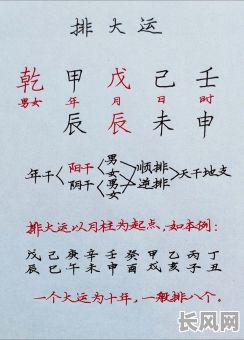 排大运
乾 甲 戊 己 壬
男女 年 月 日 时
辰 辰 未 申
男
阳干 女 顺排
年干 天干地支
阴干 男 逆排
女
排大运以月柱为起点,如本例:
戊 己 庚 辛 壬 癸 甲 乙 丙 丁
辰 巳 午 未 申 酉 戌 亥 子 丑
一个大运为十年,一般排八个。
长风网